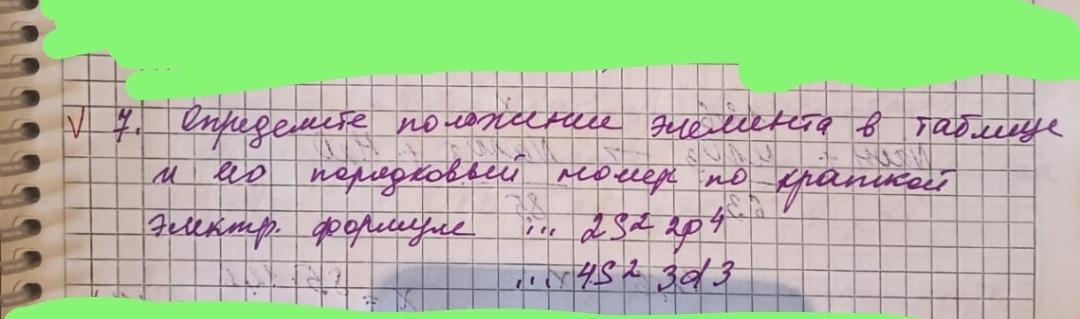 √ 7. Определите положение элемента в таблице
и его порядковый номер по краткой
электр. формуле ... 2S² 2p⁴
... 4S² 3d3